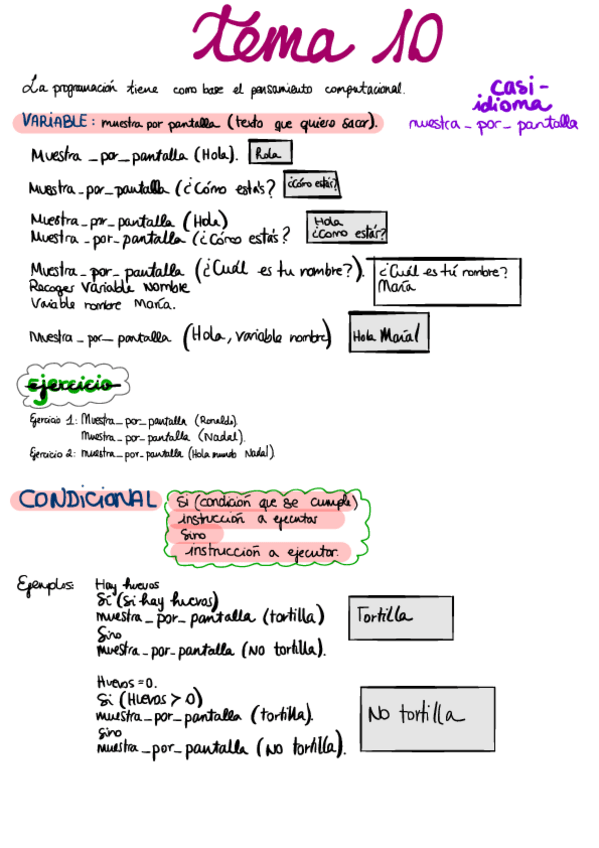 tema 10
La programación tiene como base el pensamiento computacional.
casi-
idioma
muestra_por_pantalla
VARIABLE: muestra por pantalla (texto que quiero sacar).
Muestra_por_pantalla (Hola). Hola
Muestra_por_pantalla (¿Cómo estás? ¿Cómo estás?
Muestra_por_pantalla (Hola) Hola
Muestra_por_pantalla (¿Cómo estás? ¿Como estás?
Muestra_por_pantalla (¿Cuál es tu nombre?). ¿Cuál es tú nombre?
Recoger Variable Nombre María
Variable nombre María.
Muestra_por_pantalla (Hola, variable nombre) Hola María!
ejercicio
Ejercicio 1: Muestra_por_pantalla (Ronaldo).
Muestra_por_pantalla (Nadal).
Ejercicio 2: muestra_por_pantalla (Hola mundo Nadal).
CONDICIONAL
Si (condición que se cumple)
instrucción a ejecutar
Sino
instrucción a ejecutar.
Ejemplos: Hay huevos
Si (Si hay huevos)
muestra_por_pantalla (tortilla) Tortilla
Sino
muestra_por_pantalla (No tortilla).
Huevos = 0.
Si (Huevos > 0)
muestra_por_pantalla (tortilla). No tortilla
Sino
muestra_por_pantalla (No tortilla).